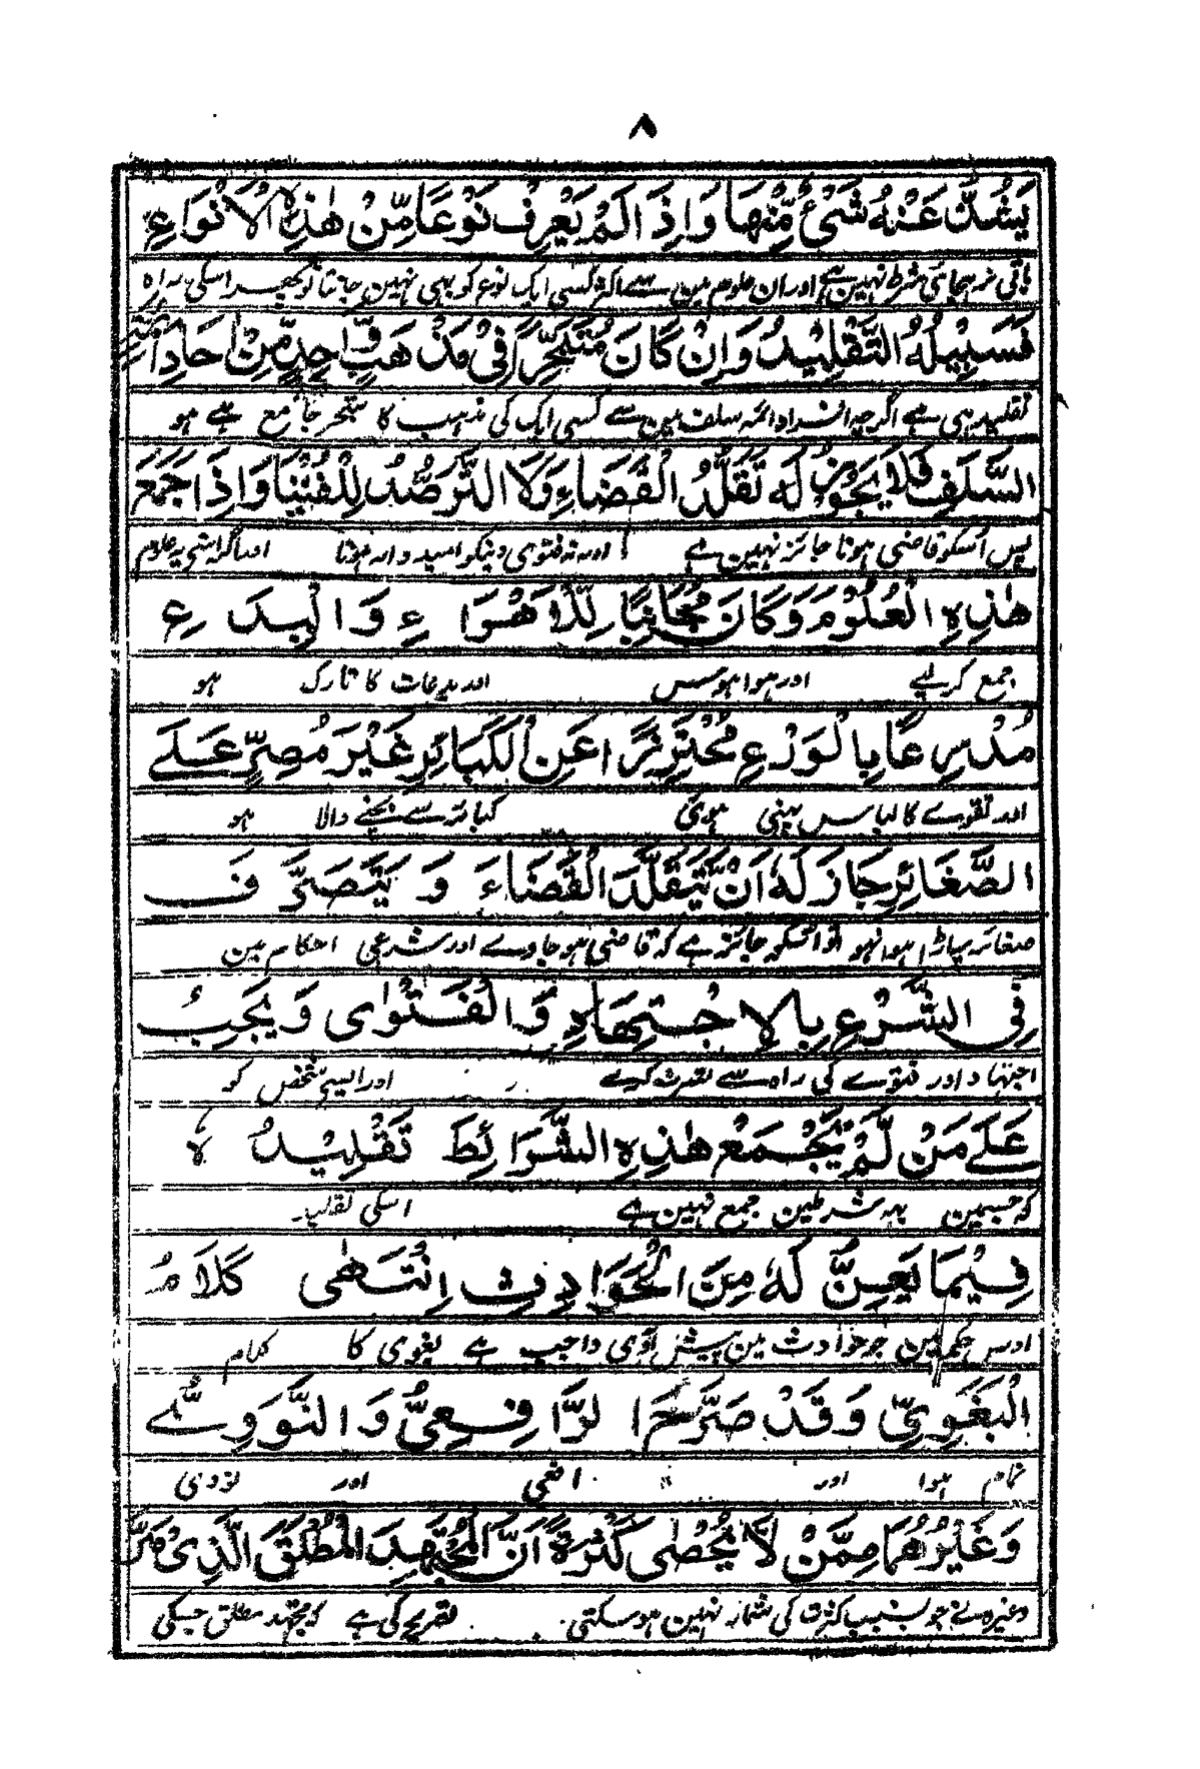 ٨
يَشُذَّ عَنْهُ شَيْءٌ مِّنْهَا وَاِذَا لَمْ يَعْرِفْ نَوْعًا مِّنْ هٰذِهِ الْاَنْوَاعِ
باقی نرہجائی شرط نہین ہے اور ان علوم مین سے اکثر کسی ایک نوع کو بہی نہین جانتا تو پھر اسکی راہ
فَسَبِيْلُهُ التَّقْلِيْدُ وَاِنْ كَانَ مُتَبَحِّرًا فِيْ مَذْهَبٍ وَّاحِدٍ مِّنْ اٰحَادِ اَئِمَّةِ
تقلید ہی ہے اگرچہ افراد ائمہ سلف مین سے کسی ایک کی مذہب کا متبحر جامع ہے ہو
السَّلَفِ فَلَا يَجُوْزُ لَهٗ تَقَلُّدُ الْقَضَاءِ وَلَا التَّرَصُّدُ لِلْفُتْيَا وَاِذَا جَمَعَ
پس اُسکو قاضی ہونا جائز نہین ہے اور نہ فتوی دینکو امیدوار ہونا اور اگر اسنی یہ علوم
هٰذِهِ الْعُلُوْمَ وَكَانَ مُجَانِبًا لِّلْاَهْوَاءِ وَالْبِدَعِ
جمع کرلیے اور ہوا ہوس اور بدعات کا تارک ہو
مُدَّرِعًا بِالْوَرْعِ مُحْتَرِزًا عَنِ الْكَبَائِرِ غَيْرَ مُصِرٍّ عَلَے
اور تقوے کا لباس پہنی ہوئی کبائر سے بچنے والا ہو
الصَّغَائِرِ جَازَ لَهٗ اَنْ يَّتَقَلَّدَ الْقَضَاءَ وَ يَتَصَرَّفَ
صغائر پر اڑا ہوا نہو تو اُسکو جائز ہے کہ قاضی ہوجاوے اور شرعی احکام مین
فِي الشَّرْعِ بِالْاِجْتِهَادِ وَالْفَتْوٰى وَيَجِبُ
اجتہاد اور فتوے کی راہ سے تصرف کرے اور ایسے شخص کو
عَلَے مَنْ لَّمْ يَجْمَعْ هٰذِهِ الشَّرَائِطَ تَقْلِيْدُهٗ
کہ جسمین یہ شرطین جمع نہین ہے اسکی تقلید
فِيْمَا يَعِنُّ لَهٗ مِنَ الْحَوَادِثِ اِنْتَهٰى كَلَامُ
اوس حکم مین جو حوادث مین پیش آوی واجب ہے بغوی کا کلام
الْبَغَوِيِّ وَقَدْ صَرَّحَ الرَّافِعِيُّ وَالنَّوَوِيُّ
تمام ہوا اور افعی اور نووی
وَغَيْرُهُمَا مِمَّنْ لَّا يُحْصٰى كَثْرَةً اَنَّ الْمُجْتَهِدَ الْمُطْلَقَ الَّذِيْ مَرَّ
وغیرہ نے جو بسبب کثرت کی شمار نہین ہوسکتی تصریح کی ہے کہ مجتہد مطلق جسکی